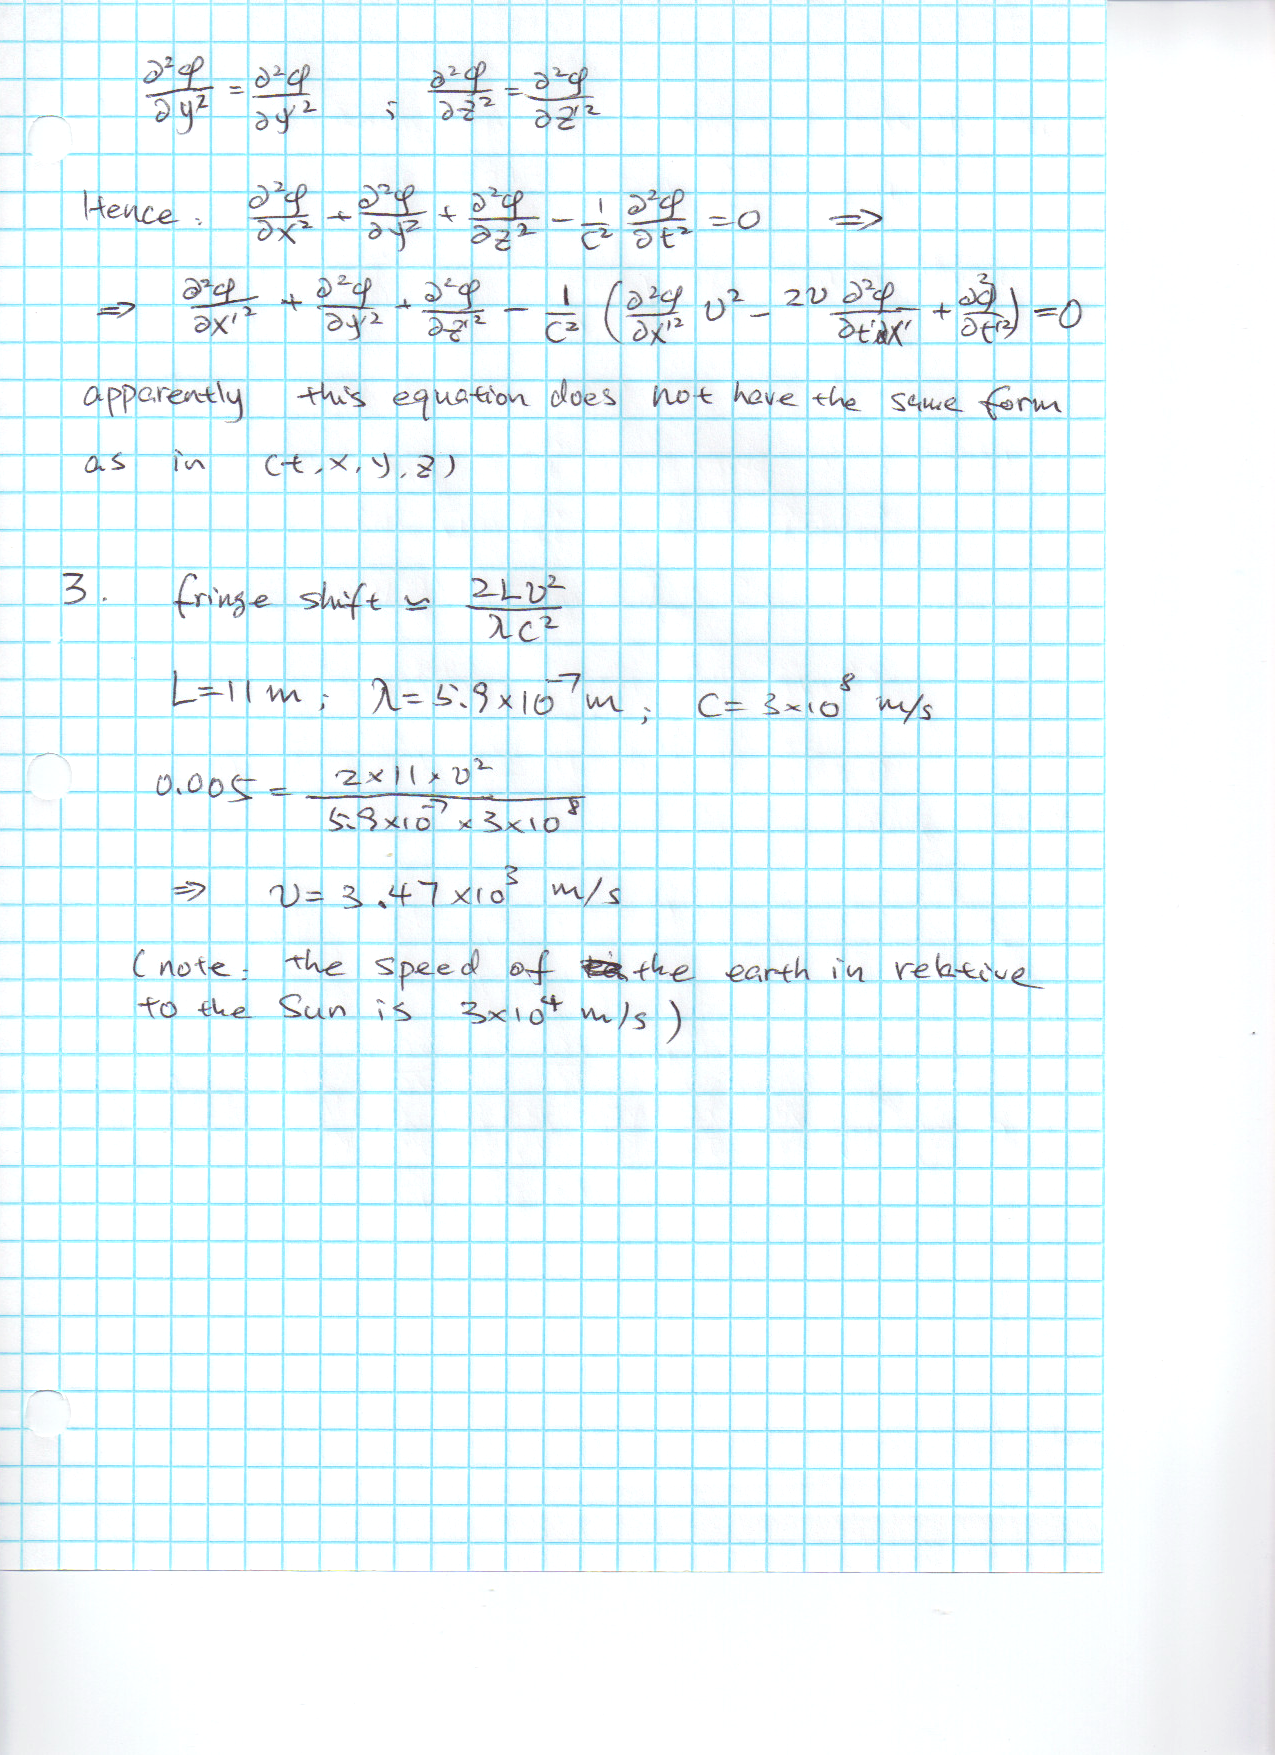 ∂²φ/∂y² = ∂²φ/∂y'² ; ∂²φ/∂z² = ∂²φ/∂z'²
Hence: ∂²φ/∂x² + ∂²φ/∂y² + ∂²φ/∂z² - 1/c² ∂²φ/∂t² = 0 ⇒
⇒ ∂²φ/∂x'² + ∂²φ/∂y'² + ∂²φ/∂z'² - 1/c² (∂²φ/∂x'² υ² - 2υ ∂²φ/∂t'∂x' + ∂²φ/∂t'²) = 0
apparently this equation does not have the same form
as in (t, x, y, z)
3. fringe shift ≃ 2Lυ²/λc²
L=11m; λ=5.9×10⁻⁷m; c=3×10⁸ m/s
0.005 = 2×11×υ²/5.9×10⁻⁷×3×10⁸
⇒ υ=3.47×10³ m/s
(note: the speed of the earth in relative
to the Sun is 3×10⁴ m/s)